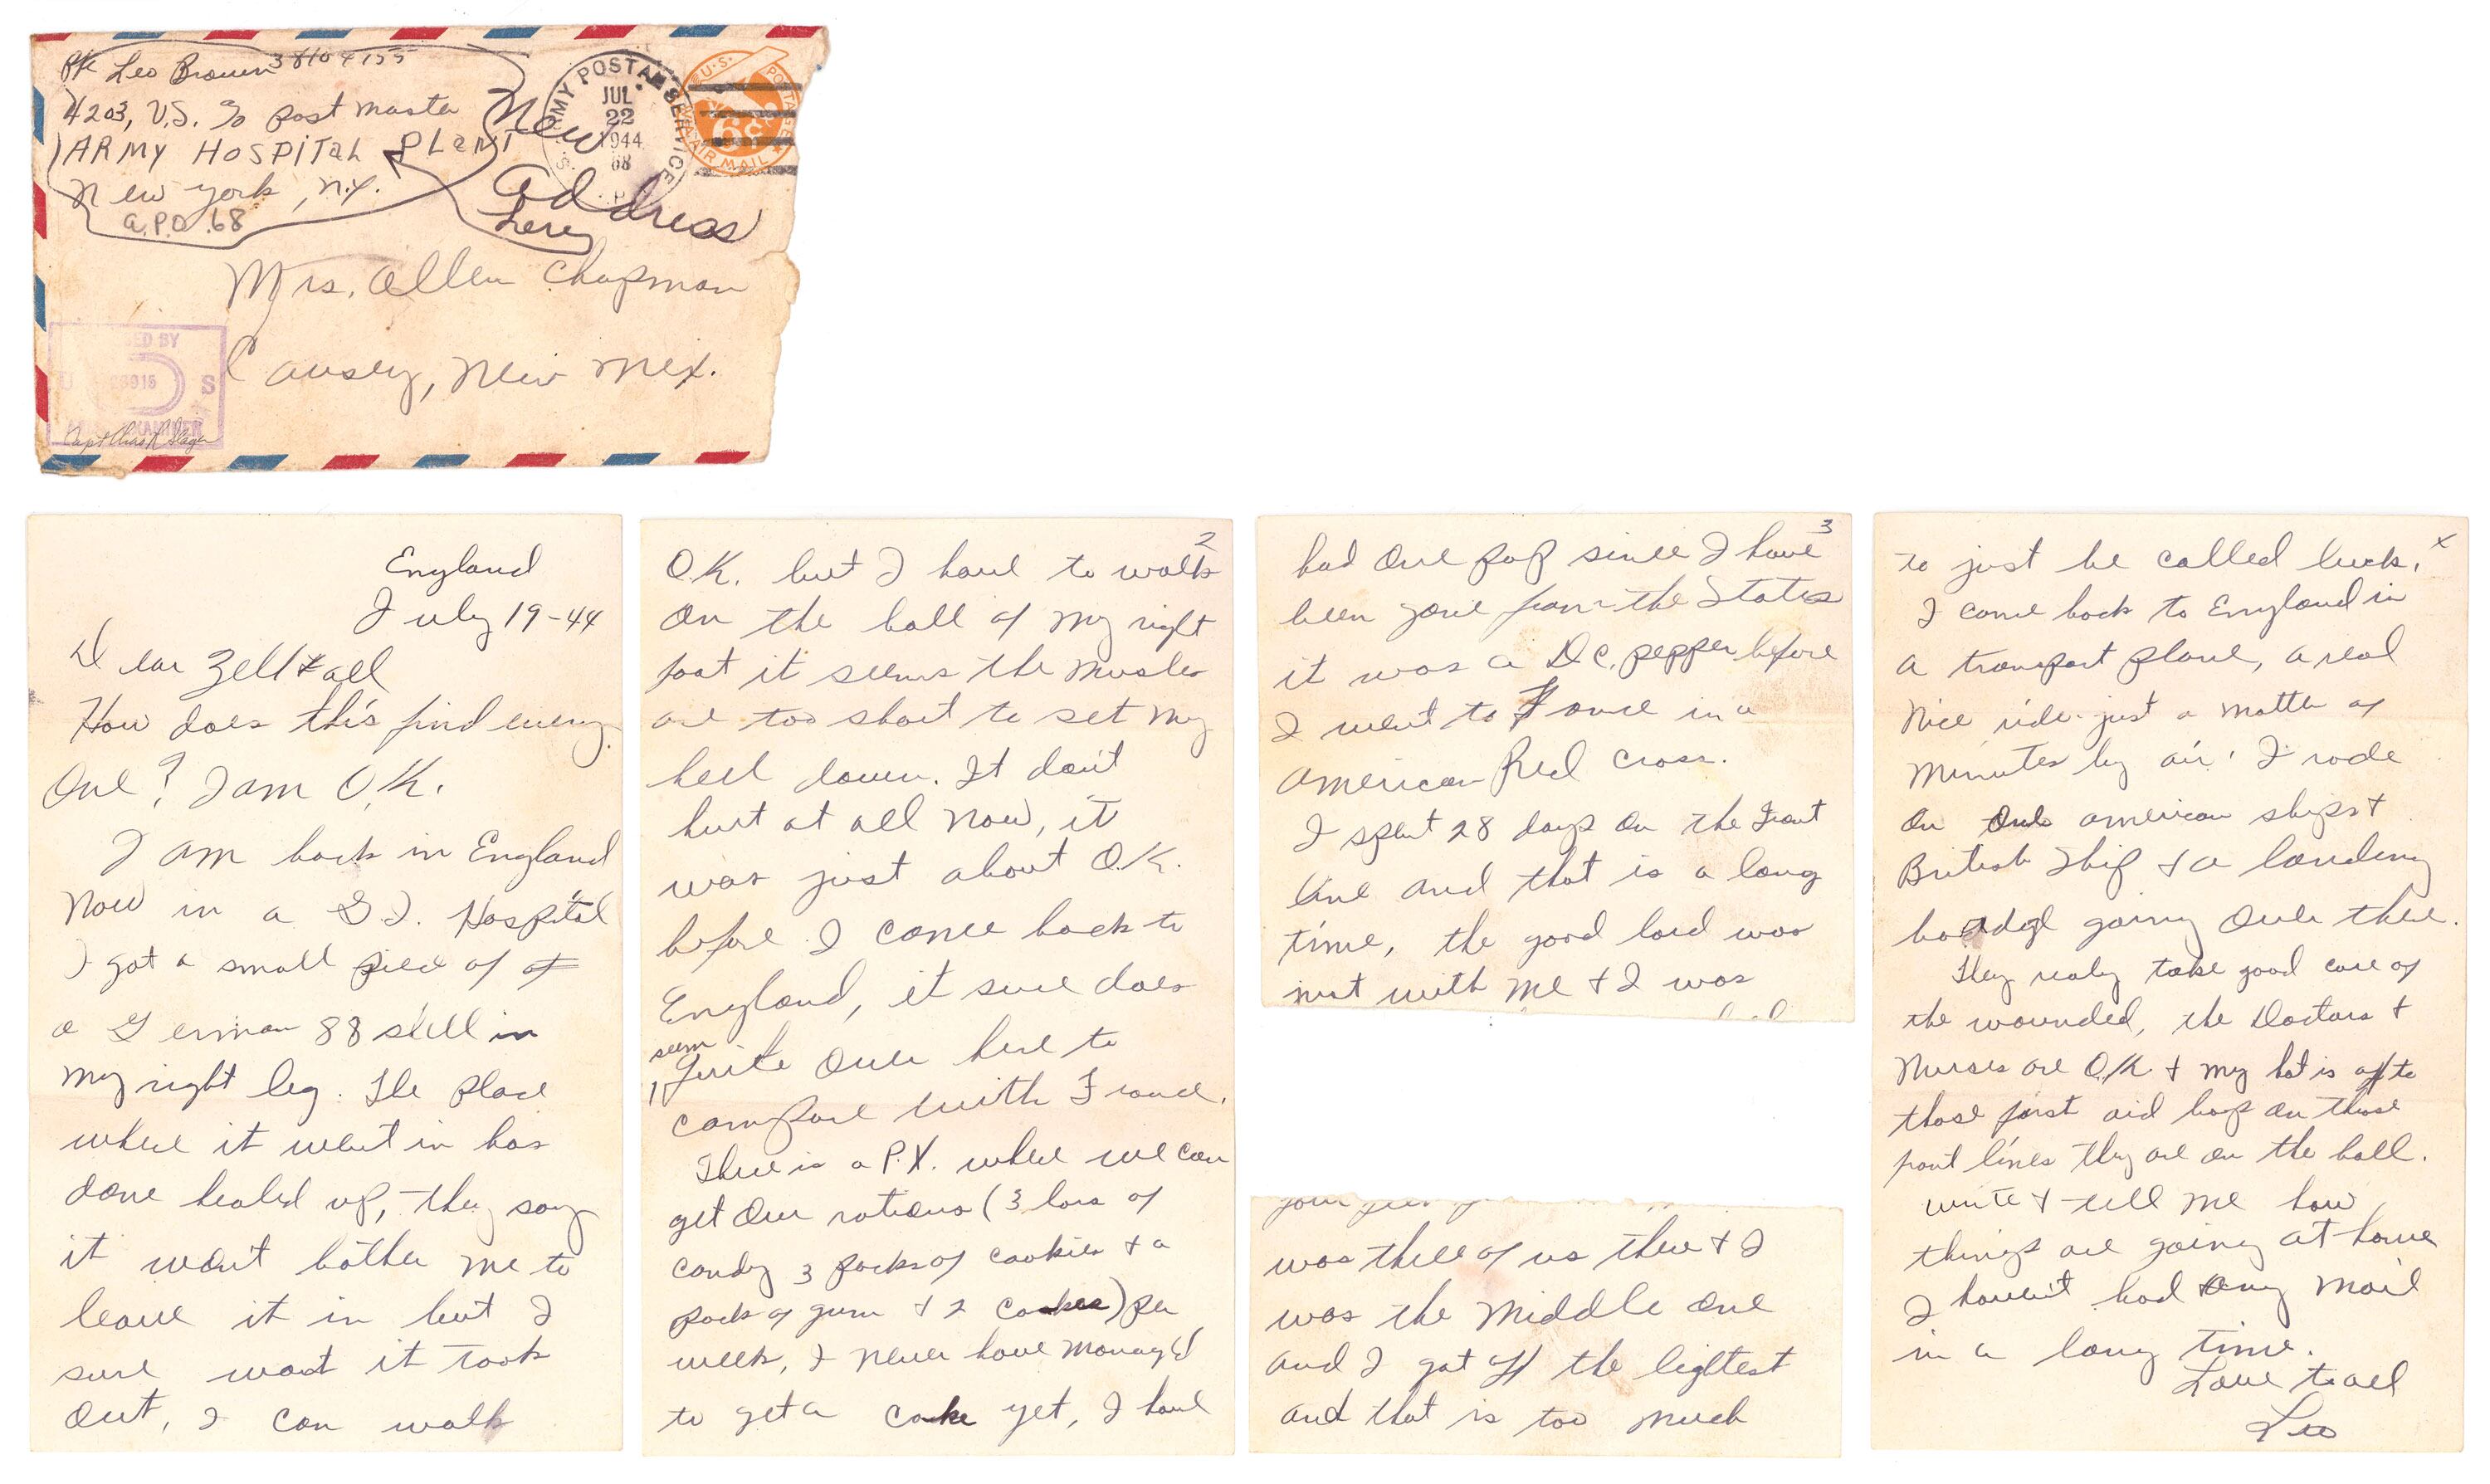 Pfc Leo Brown 38104755
4203, U.S. % post masta
ARMY HOSPITAL PLANT
New york, n.y.
a.P.O. 68
New
address
ARMY POSTAL SERVICE
JUL
22
1944
68
U.S. POSTAGE
6¢
VIA AIR MAIL
Mrs. Allen Chapman
Causey, New Mex.
ED BY
U S
Capt
England
July 19-44
Dear Zell & all
How does this find every
One? I am O.K.
I am back in England
Now in a G.I. Hospital
I got a small piece of of
a German 88 shell in
my right leg. The place
where it went in has
done healed up, they say
it won't bother me to
leave it in but I
sure want it took
out, I can walk
2
O.K. but I have to walk
On the ball of my right
foot it seems the musles
are too short to set my
heel down. It don't
hurt at all now, it
was just about O.K.
before I come back to
England, it sure does
seem
Quite over here to
compare with France.
There is a P.X. where we can
get our rations (3 bars of
candy 3 packs of cookies & a
pack of gum & 2 cokes) per
week, I never have managed
to get a coke yet, I have
3
had one pop since I have
been gone from the States
it was a Dc. pepper before
I went to France in a
American Red Cross.
I spent 28 days on the Front
line and that is a long
time, the good lord was
just with me & I was
was three of us there & I
was the middle one
and I got off the lightest
and that is too much
x
to just be called luck.
I come back to England in
a transport plane, a real
Nice ride just a matter of
minutes by air. I rode
on American ships &
British Ship & a landing
going over there.
They realy take good care of
the wounded, the Doctors &
Nurses are O.K. & my hat is off to
those first aid boys on those
front lines they are on the ball.
write & tell me how
things are going at home
I haven't had any mail
in a long time.
Love to all
Leo